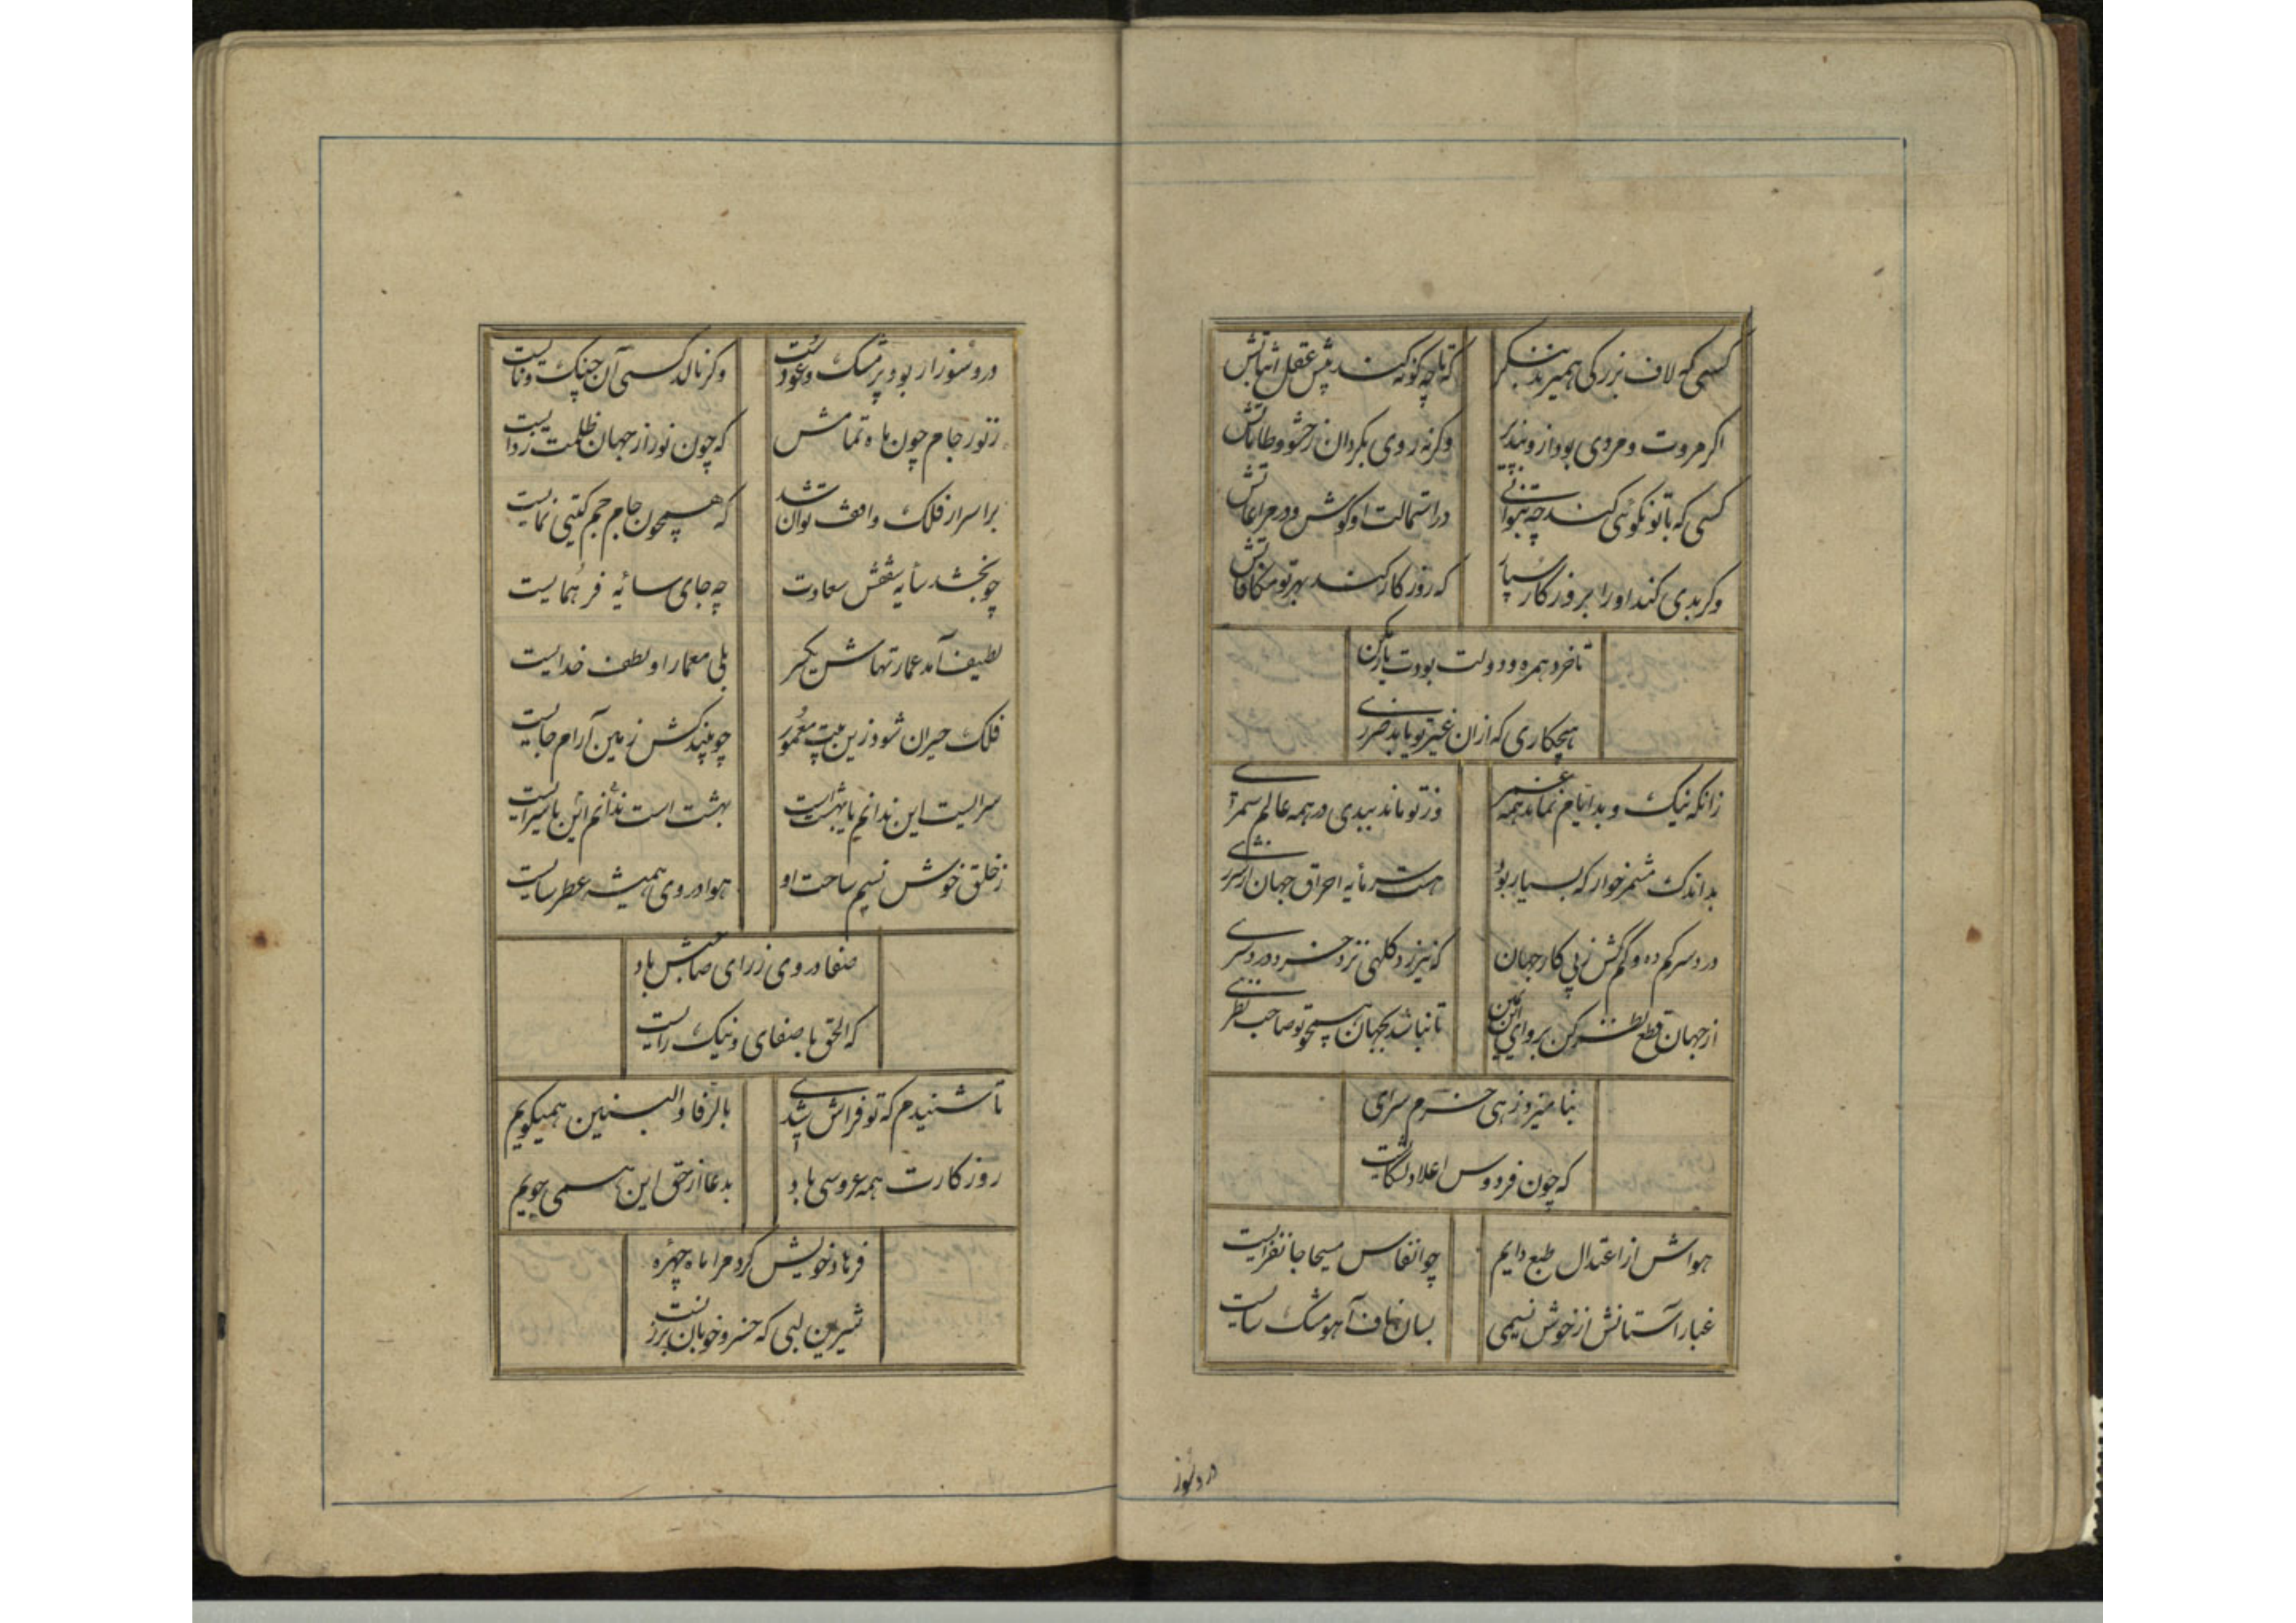 کسی که لاف بزرگی همیزند بنگر که تا چه گونه کند پیش عقل اثباتش
اگر مروت و مردی بود ازو بپذیر وگرنه روی بگردان ز حشو و طاماتش
کسی که با تو نکوئی کند چه بتوانی در استمالت او کوش و در مراعاتش
وگر بدی کند او را بروزگار سپار که روزگار کند بهر تو مکافاتش
تا خرد همره و دولت بودت یار مکن
هیچکاری که ازان غیر تو یابد ضرری
زانکه نیک و بد ایام نماند همه عمر وز تو ماند ببدی در همه عالم سمری
بد اندک مشمر خوار که بسیار بود هست سرمایه احراق جهان از شرری
درد سر کم ده و کم گش ز پی کار جهان که نیرزد کلهی نزد خرد درد سری
از جهان قطع نظر کن بر وای ابن یمین تا نباشد بجهان همچو تو صاحب نظری
بنامیزد زهی خرم سرای
که چون فردوس اعلا دلگشایست
هواش از اعتدال طبع دایم چو انفاس مسیحا جانفزایست
غبار آستانش از خوش نسیمی بسان ناف آهو مشک سایست
درو سوز
درو سوز ار بود پر مشک و عودست وگر نالد کسی آن چنگ و نایست
ز نور جام چون ماه تمامش که چون نور از جهان ظلمت زدایست
بر اسرار فلک واقف توان شد که همچون جام جم گیتی نمایست
چو بخشد سایه سقفش سعادت چه جای سایهٔ فر همایست
لطیف آمد عمارتهاش یکسر بلی معمار او لطف خدایست
فلک حیران شود زین بیت معمور چو بیند کش زمین آرام جایست
سرایست این ندانم یا بهشت است بهشت است ندانم این یا سرایست
ز خلق خوش نسیم ساحت او هوا در وی همیشه عطر سایست
صفا در وی ز رای صاحبش باد
که الحق با صفای و نیک رایست
تا شنیدم که تو فراش شدی بالرفا و البنین همیگویم
روزگارت همه عروسی باد بدعا از حق این همی جویم
فرهاد خویش کرد مرا ماه چهره
شیرین لبی که خسرو خوبان برزنست